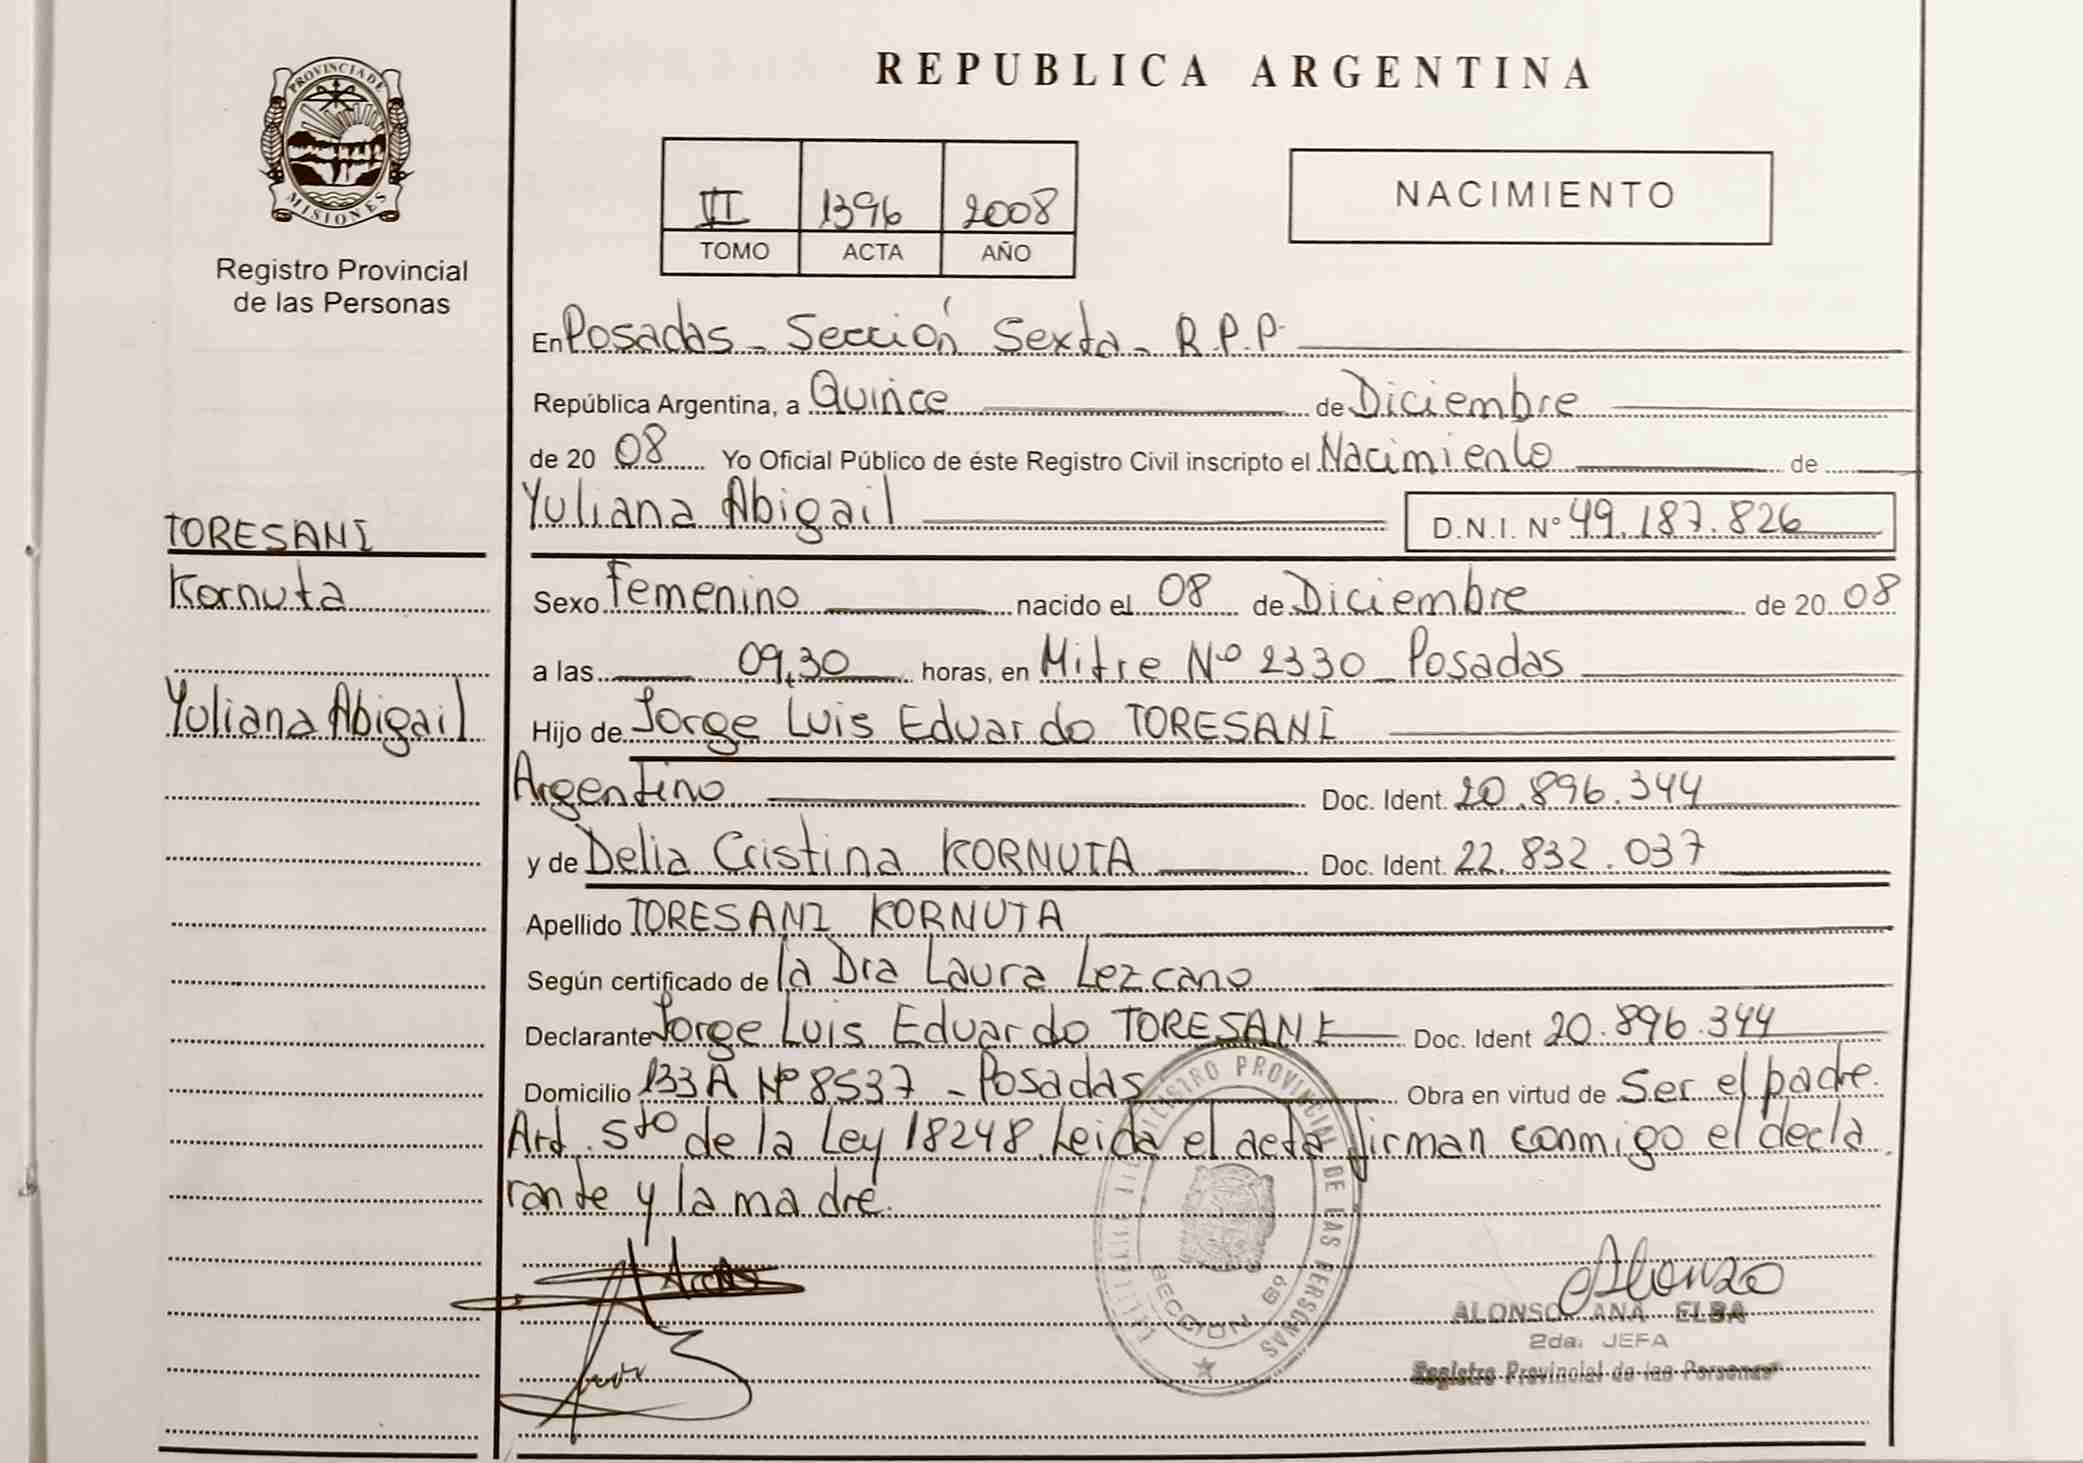 REPUBLICA ARGENTINA
PROVINCIA DE
MISIONES
Registro Provincial
de las Personas
VI 1396 2008
TOMO ACTA AÑO
NACIMIENTO
En Posadas - Sección Sexta - R.P.P.
República Argentina, a Quince de Diciembre
de 20 08 Yo Oficial Público de éste Registro Civil inscripto el Nacimiento de
Yuliana Abigail D.N.I. Nº 49.187.826
TORESANI
Kornuta
Yuliana Abigail
Sexo Femenino nacido el 08 de Diciembre de 20 08
a las 09,30 horas, en Mitre Nº 2330 Posadas
Hijo de Jorge Luis Eduardo TORESANI
Argentino Doc. Ident. 20.896.344
y de Delia Cristina KORNUTA Doc. Ident. 22.832.037
Apellido TORESANI KORNUTA
Según certificado de la Dra Laura Lezcano
Declarante Jorge Luis Eduardo TORESANI Doc. Ident 20.896.344
Domicilio 133A Nº 8537 - Posadas Obra en virtud de Ser el padre.
Art. 5to de la Ley 18248. Leida el acta firman conmigo el decla
rante y la madre.
REGISTRO PROVINCIAL DE LAS PERSONAS
SECCION 6ª
Alonzo
ALONSO ANA ELBA
2da. JEFA
Registro Provincial de las Personas